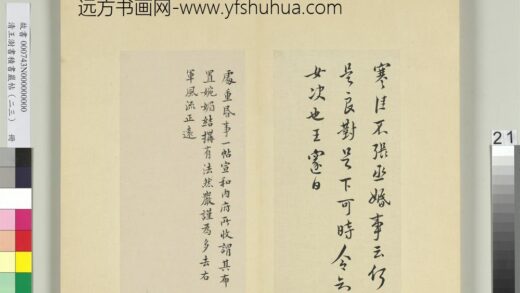 远方书画网-www.yfshuhua.com
寒佳不張丞婚事云仍
是良對足下可時令知
女決也王邃白
處重昏事一帖宣和内府所收謂其布
置婉媚結搆有法然嚴謹為多去右
軍風流正遠
故書 000743N00000000
清王澍書積書巖帖(二三) 冊
21